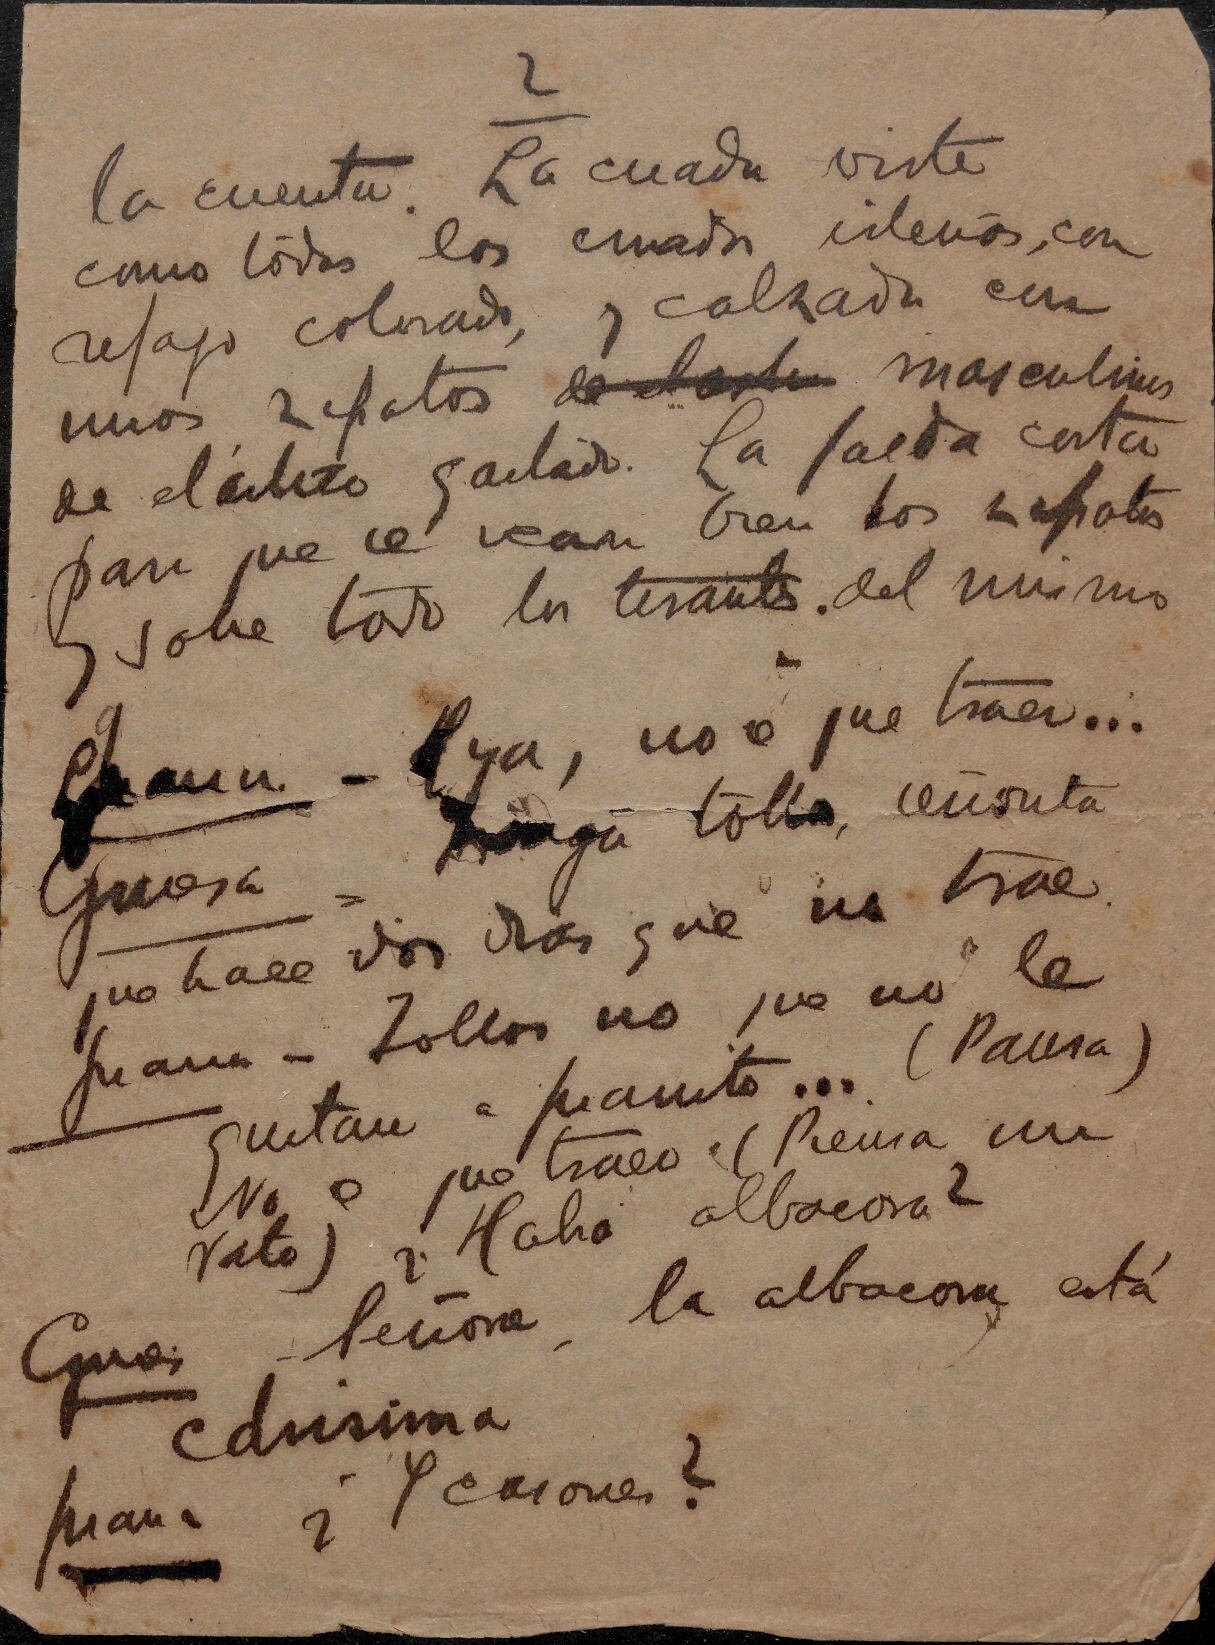 2
la cuenta. La criada viste
como todas las criadas isleñas, con
refajo colorado, y calzada con
unos zapatos de masculinos
de elástico gastado. La falda corta
para que se vean bien los zapatos
y sobre todo los tirantes. del mismo
Juana. - Pya, no sé que traer...
tollo, señorita
que hace dos días que no trae.
Juana - Tollos no que no le
gustan a Juanito... (Pausa)
No sé que traer. (Piensa un
rato) ¿Habrá albacora?
Señora, la albacora está
carísima
Juana ¿Y casones?